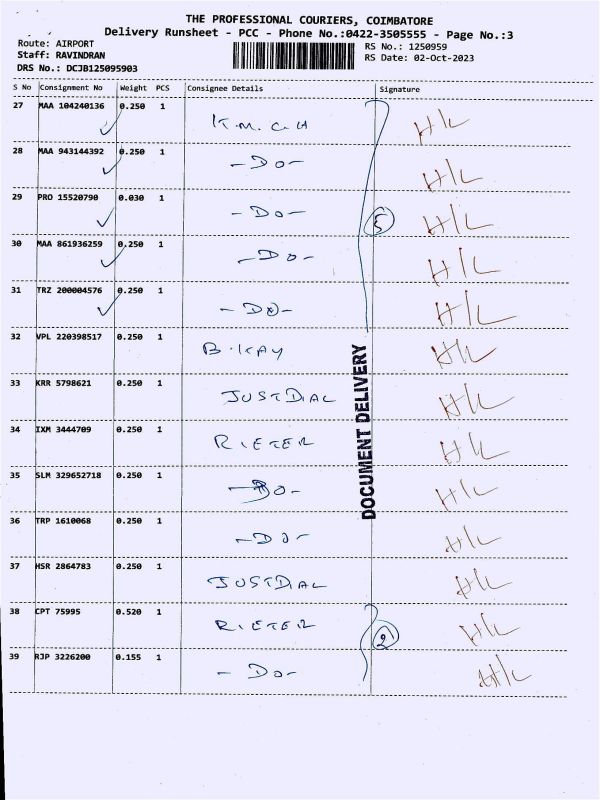 THE PROFESSIONAL COURIERS, COIMBATORE
Delivery Runsheet - PCC - Phone No.:0422-3505555 - Page No.:3
Route: AIRPORT
RS No.: 1250959
Staff: RAVINDRAN
RS Date: 02-Oct-2023
DRS No.: DCJB125095903
S No Consignment No Weight PCS Consignee Details Signature
27 MAA 104240136 0.250 1 K.M.C.H H/L
28 MAA 943144392 0.250 1 -DO- H/L
29 PRO 15520790 0.030 1 -DO- 5 H/L
30 MAA 861936259 0.250 1 -DO- H/L
31 TRZ 200004576 0.250 1 -DO- H/L
32 VPL 220398517 0.250 1 B.KAY H/L
33 KRR 5798621 0.250 1 JUSTDIAL H/L
DOCUMENT DELIVERY
34 IXM 3444709 0.250 1 RIETER H/L
35 SLM 329652718 0.250 1 -DO- H/L
36 TRP 1610068 0.250 1 -DO- H/L
37 HSR 2864783 0.250 1 JUSTDIAL H/L
38 CPT 75995 0.520 1 RIETER 2 H/L
39 RJP 3226200 0.155 1 -DO- H/L